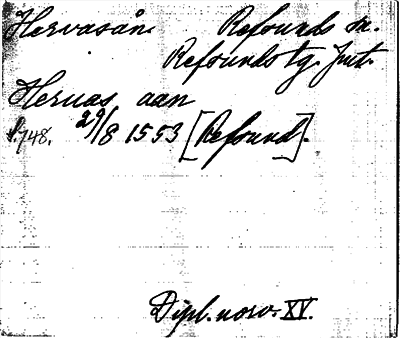 Hervasån. Refsunds sn.
Refsunds tg. Jmt.
Heruas aan
S. 748. 29/8 1553 [Refsund].
Dipl. norv. XV.